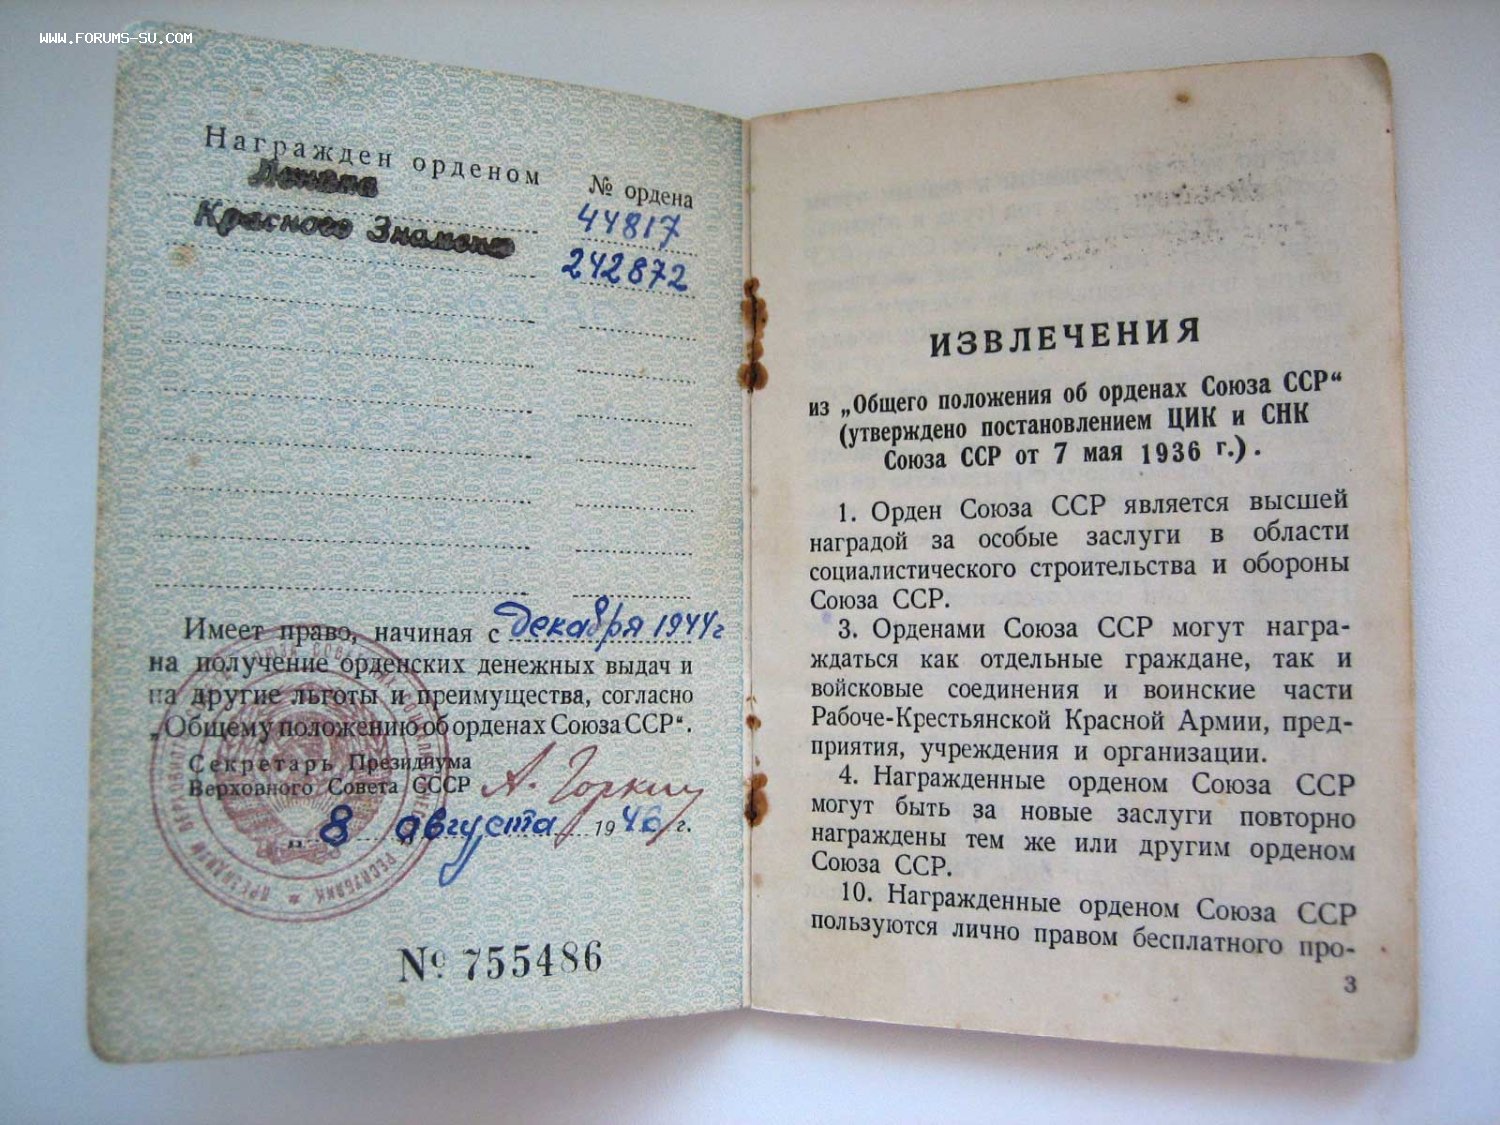 WWW.FORUMS-SU.COM
Награжден орденом
№ ордена
Ленина
44817
Красного Знамени
242872
Имеет право, начиная с декабря 1944 г
на получение орденских денежных выдач и
на другие льготы и преимущества, согласно
„Общему положению об орденах Союза ССР“.
Секретарь Президиума
Верховного Совета СССР А. Горкин
„ 8 августа 1946 г.
№ 755486
ИЗВЛЕЧЕНИЯ
из „Общего положения об орденах Союза ССР“
(утверждено постановлением ЦИК и СНК
Союза ССР от 7 мая 1936 г.).
1. Орден Союза ССР является высшей
наградой за особые заслуги в области
социалистического строительства и обороны
Союза ССР.
3. Орденами Союза ССР могут награ-
ждаться как отдельные граждане, так и
войсковые соединения и воинские части
Рабоче-Крестьянской Красной Армии, пред-
приятия, учреждения и организации.
4. Награжденные орденом Союза ССР
могут быть за новые заслуги повторно
награждены тем же или другим орденом
Союза ССР.
10. Награжденные орденом Союза ССР
пользуются лично правом бесплатного про-
3